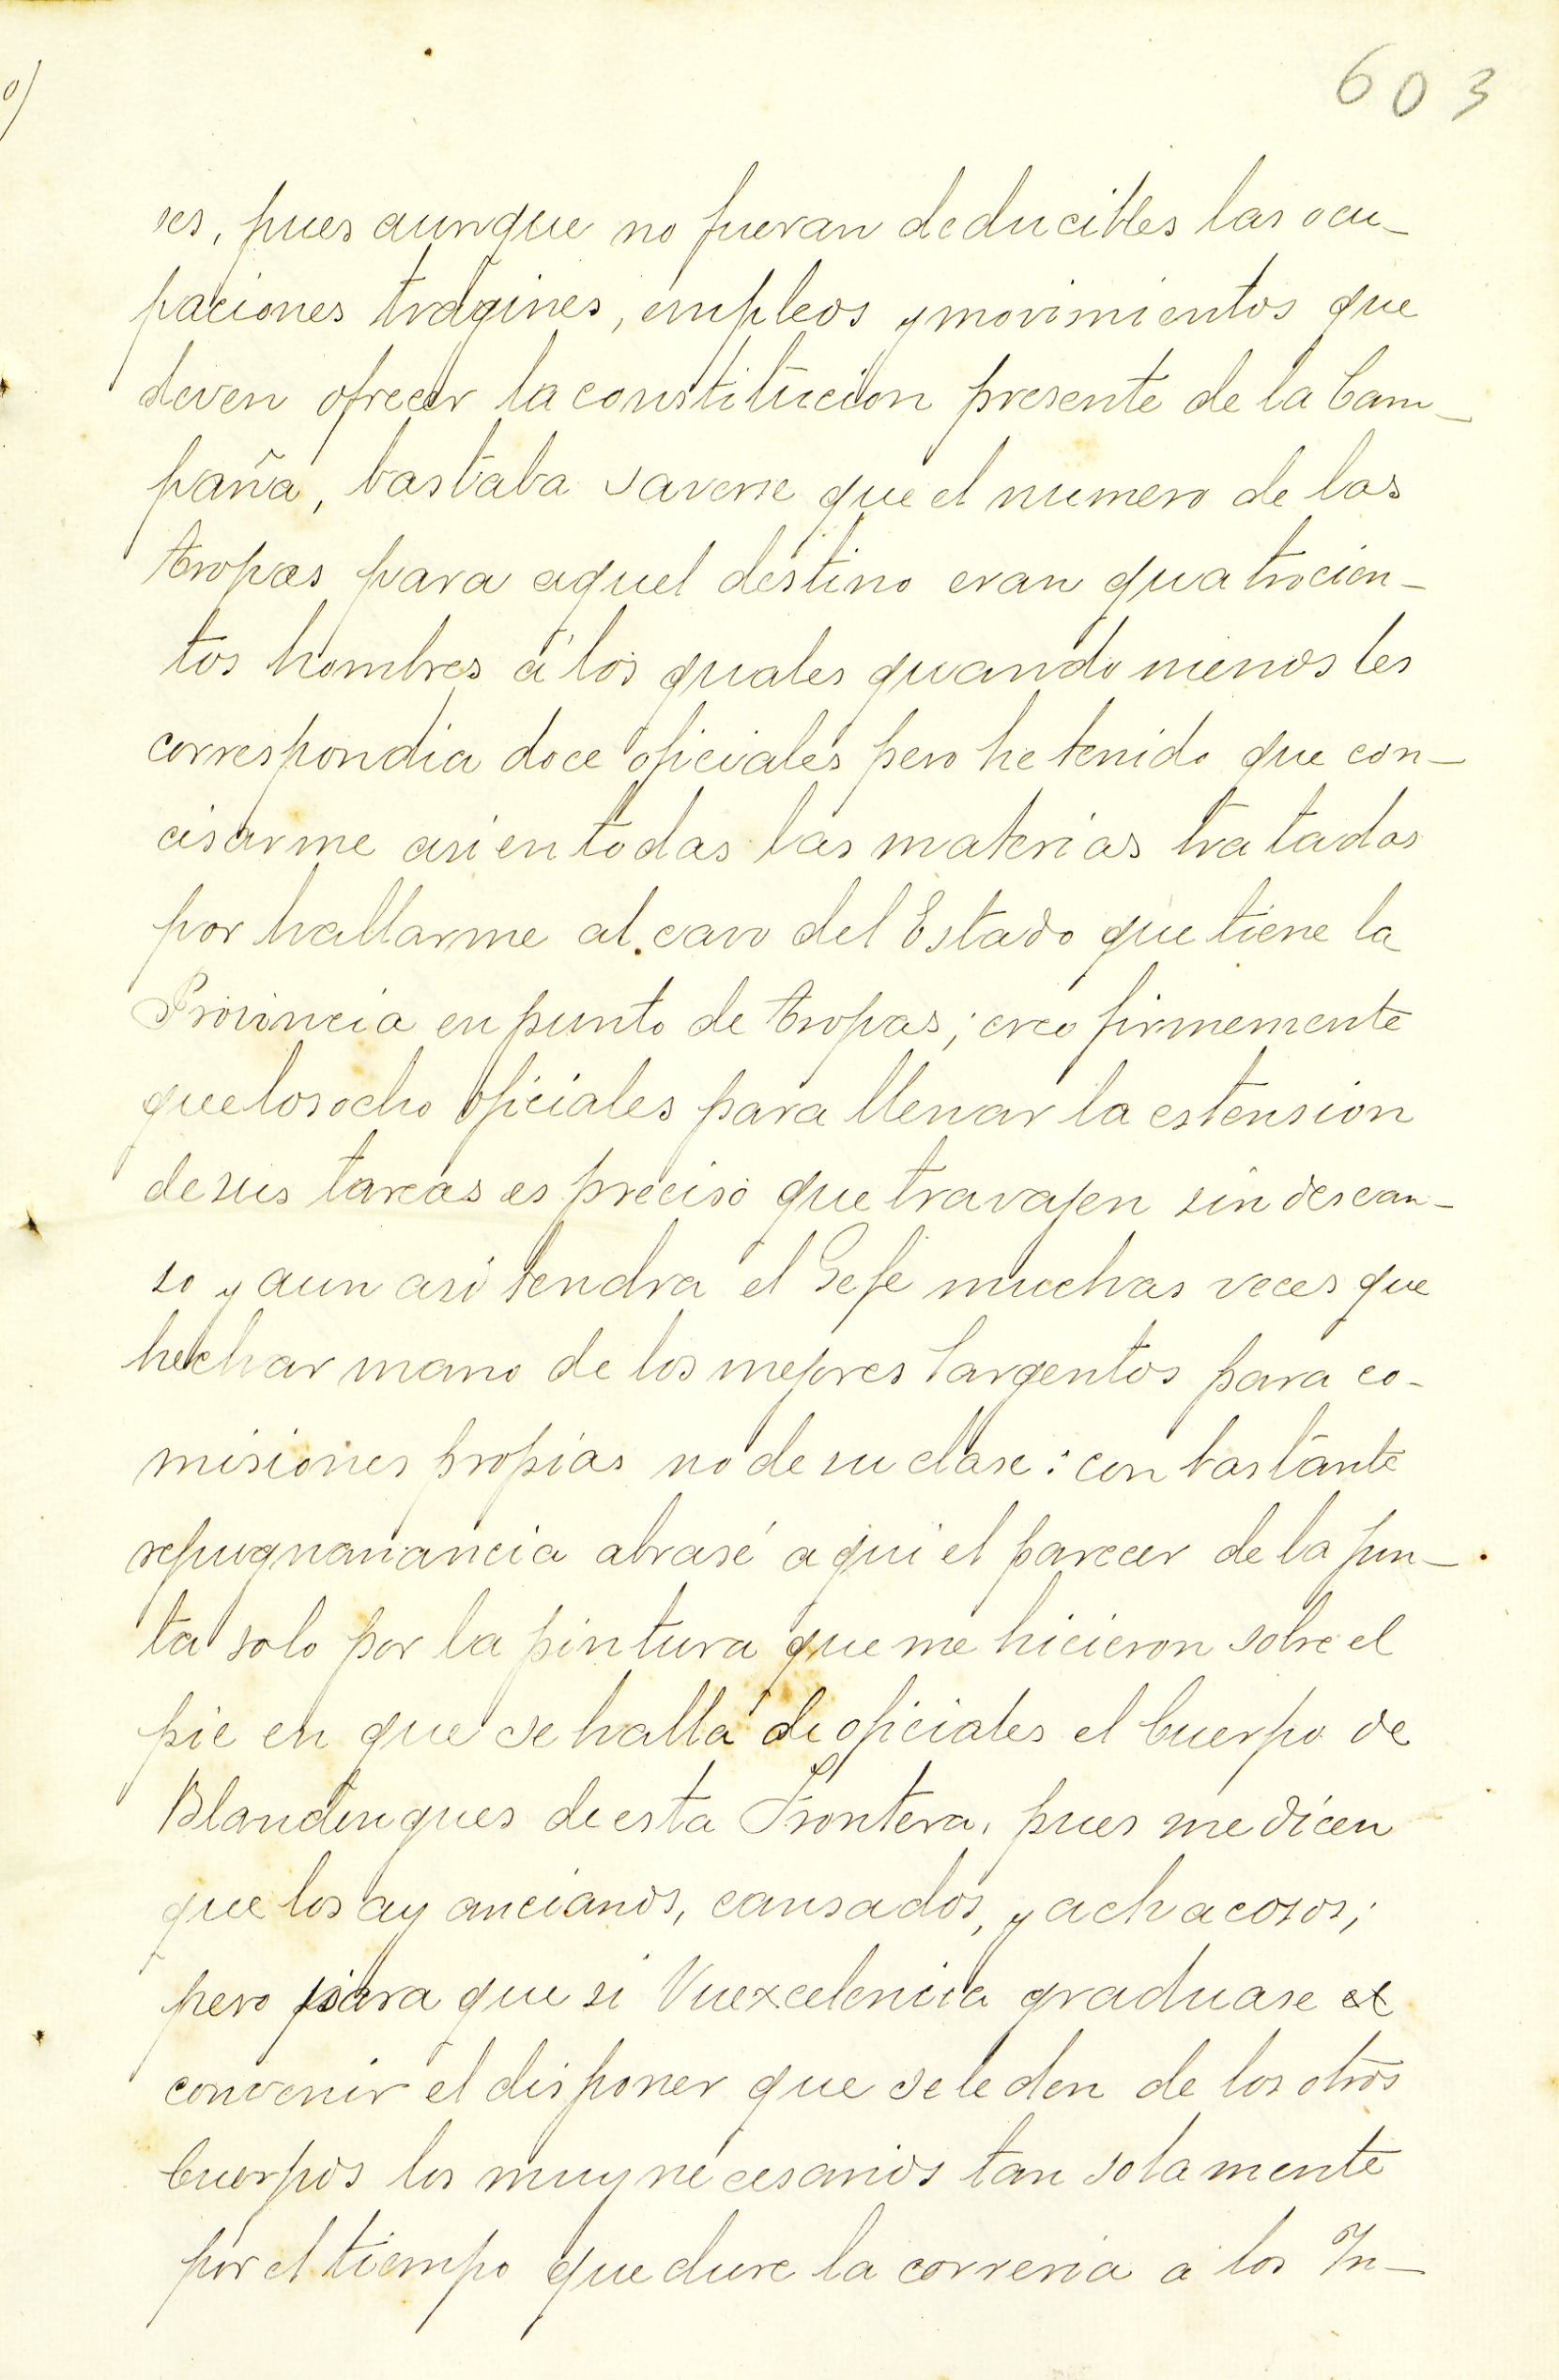 603
ses, pues aunque no fueran deducibles las ocu-
paciones tragines, empleos y movimientos que
deven ofrecer la constitucion presente de la Cam-
paña, bastaba saverse que el numero de las
tropas para aquel destino eran quatrocien-
tos hombres á los quales quando menos les
correspondia doce oficiales pero he tenido que con-
cisarme asi en todas las materias tratadas
por hallarme al cavo del Estado que tiene la
Provincia en punto de tropas; creo firmemente
que los ocho oficiales para llenar la estension
de sus tareas es preciso que travajen sin descan-
so y aun asi tendra el Gefe muchas veces que
hechar mano de los mejores Sargentos para co-
misiones propias no de su clase: con bastante
repugnanancia abrasé aqui el parecer de la Jun-
ta solo por la pintura que me hicieron sobre el
pie en que se halla de oficiales el Cuerpo de
Blandengues de esta Frontera, pues me dicen
que los ay ancianos, cansados, y achacosos;
pero para que si Vuexcelencia graduase el
convenir el disponer que se le den de los otros
Cuerpos los muy necesarios tan solamente
por el tiempo que dure la correria a los In-